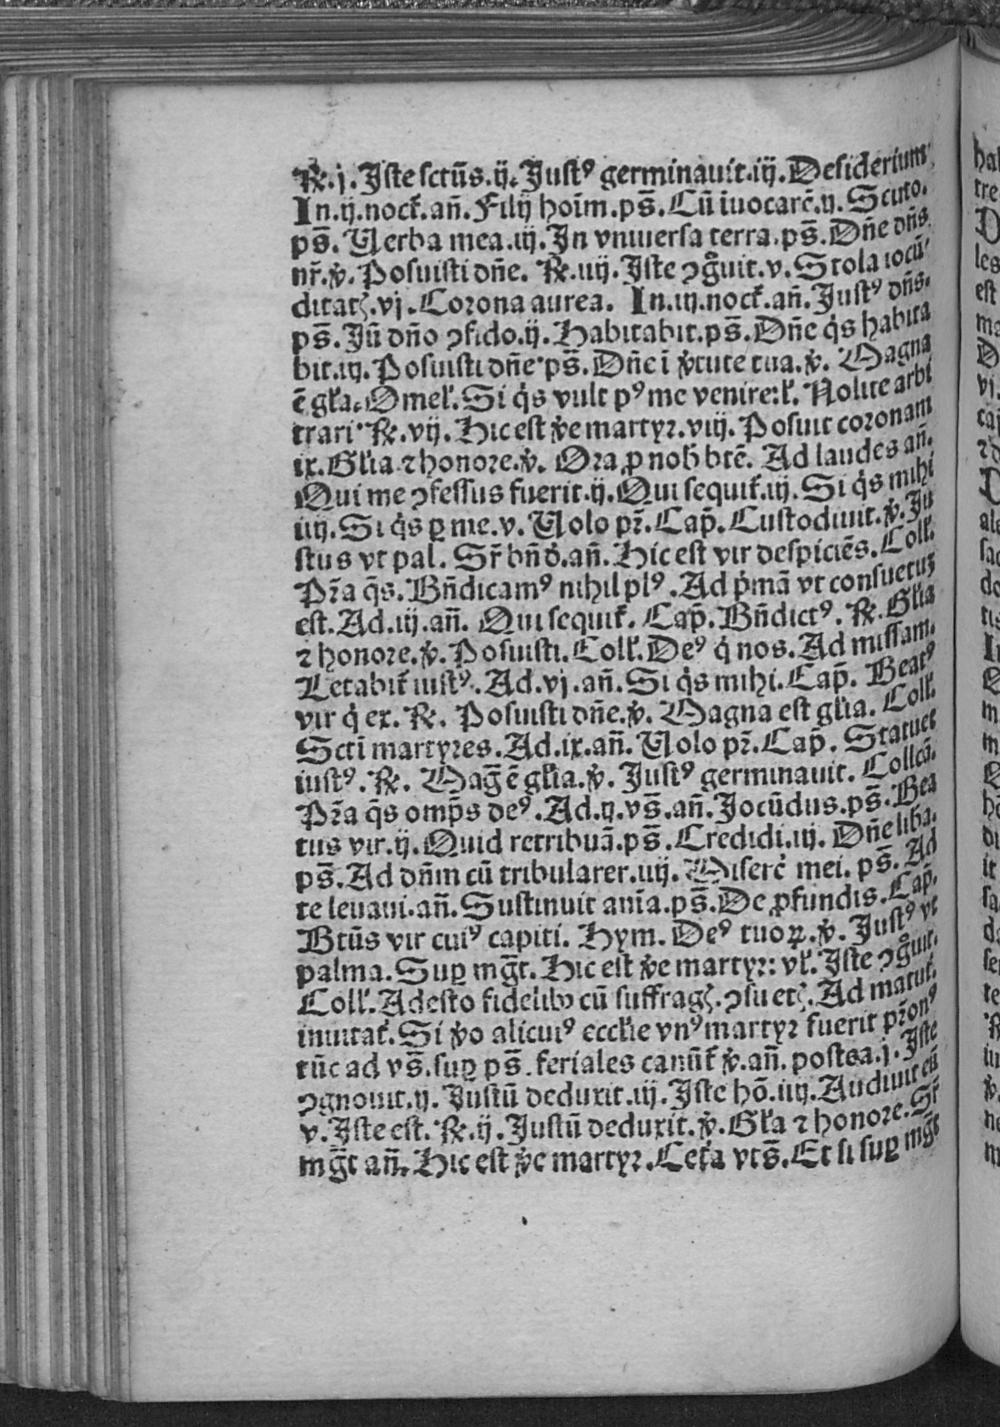 ℟.j.Iste sctūs.ij.Iustꝰ germinauit.iij.Desiderium
In.ij.noct̄.an̄.Filij hoīm.ps̄.Cū iuocarē.ij.Scuto.
ps̄.Uerba mea.iij.In vniuersa terra.ps̄.Dn̄e dn̄s
nr̄.ꝟ.Posuisti dn̄e. ℟.iiij.Iste ꝯgͦuit.v.Stola iocū
ditatꝭ.vj.Corona aurea. In.iij.noct̄.an̄.Iustꝰ dn̄s.
ps̄.In dn̄o ꝯfido.ij.Habitabit.ps̄.Dn̄e qͥs habita
bit.iij.Posuisti dn̄e.ps̄.Dn̄e ī ꝟtute tua.ꝟ. Magna
ē gl̄a.Omel̄.Si qͥs vult pꝰ me venire:l̄. Nolite arbi
trari.℟.vij.Hic est ꝟe martyr.viij.Posuit coronam
ix.Gl̄ia ⁊ honore.ꝟ. Ora ꝓ nob̄ btē. Ad laudes an̄.
Qui me ꝯfessus fuerit.ij.Qui sequit̄.iij.Si qͥs mihi
iiij.Si qͥs ꝑ me.v.Uolo pr̄.Cap̄.Custodiuit.ꝟ.Iu
stus vt pal. Sr̄ bn̄d̄.an̄.Hic est vir despiciēs.Coll̄.
Pr̄a q̄s.Bn̄dicamꝰ nihil plꝰ.Ad pͥmā vt consuetuꝫ
est.Ad.iij.an̄. Qui sequit̄. Cap̄.Bn̄dictꝰ.℟.Gl̄ia
⁊ honore.ꝟ.Posuisti.Coll̄.Deꝰ qͥ nos.Ad missam.
Letabit̄ iustꝰ.Ad.vj.an̄.Si qͥs mihi.Cap̄. Beatꝰ
vir qͥ ex.℟. Posuisti dn̄e.ꝟ.Magna est gl̄ia. Coll̄.
Sctī martyres.Ad.ix.an̄.Uolo pr̄.Cap̄. Statuet
iustꝰ.℟. Maḡ ē gl̄ia.ꝟ. Iustꝰ germinauit. Collcā.
Pr̄a q̄s omp̄s deꝰ.Ad.ij.vs̄.an̄.Iocūdus.ps̄.Bea
tus vir.ij.Quid retribuā.ps̄.Credidi.iij. Dn̄e liba.
ps̄.Ad dn̄m cū tribularer.iiij. Miserē mei. ps̄. Ad
te leuaui.an̄.Sustinuit anīa.ps̄.De ꝓfundis.Cap̄.
Btūs vir cuiꝰ capiti. Hym. Deꝰ tuoꝝ.ꝟ. Iustꝰ vt
palma.Suꝑ mḡt.Hic est ꝟe martyr: vl̄.Iste ꝯgͦuit.
Coll̄.Adesto fidelibꝰ cū suffragꝭ.ꝯsuetꝭ.Ad matut̄.
inuitat̄.Si ꝟo alicuiꝰ eccl̄ie vnꝰ martyr fuerit pr̄onꝰ
tūc ad vs̄.suꝑ ps̄.feriales canūt̄ ꝟ.an̄.postea.j.Iste
ꝯgnouit.ij.Iustū deduxit.iij.Iste hō.iiij.Audiuit eū
v.Iste est.℟.ij.Iustū deduxit.ꝟ.Gl̄a ⁊ honore.Sr̄
mḡt an̄.Hic est ꝟe martyr.Cet̄a vts̄.Et si suꝑ mḡt